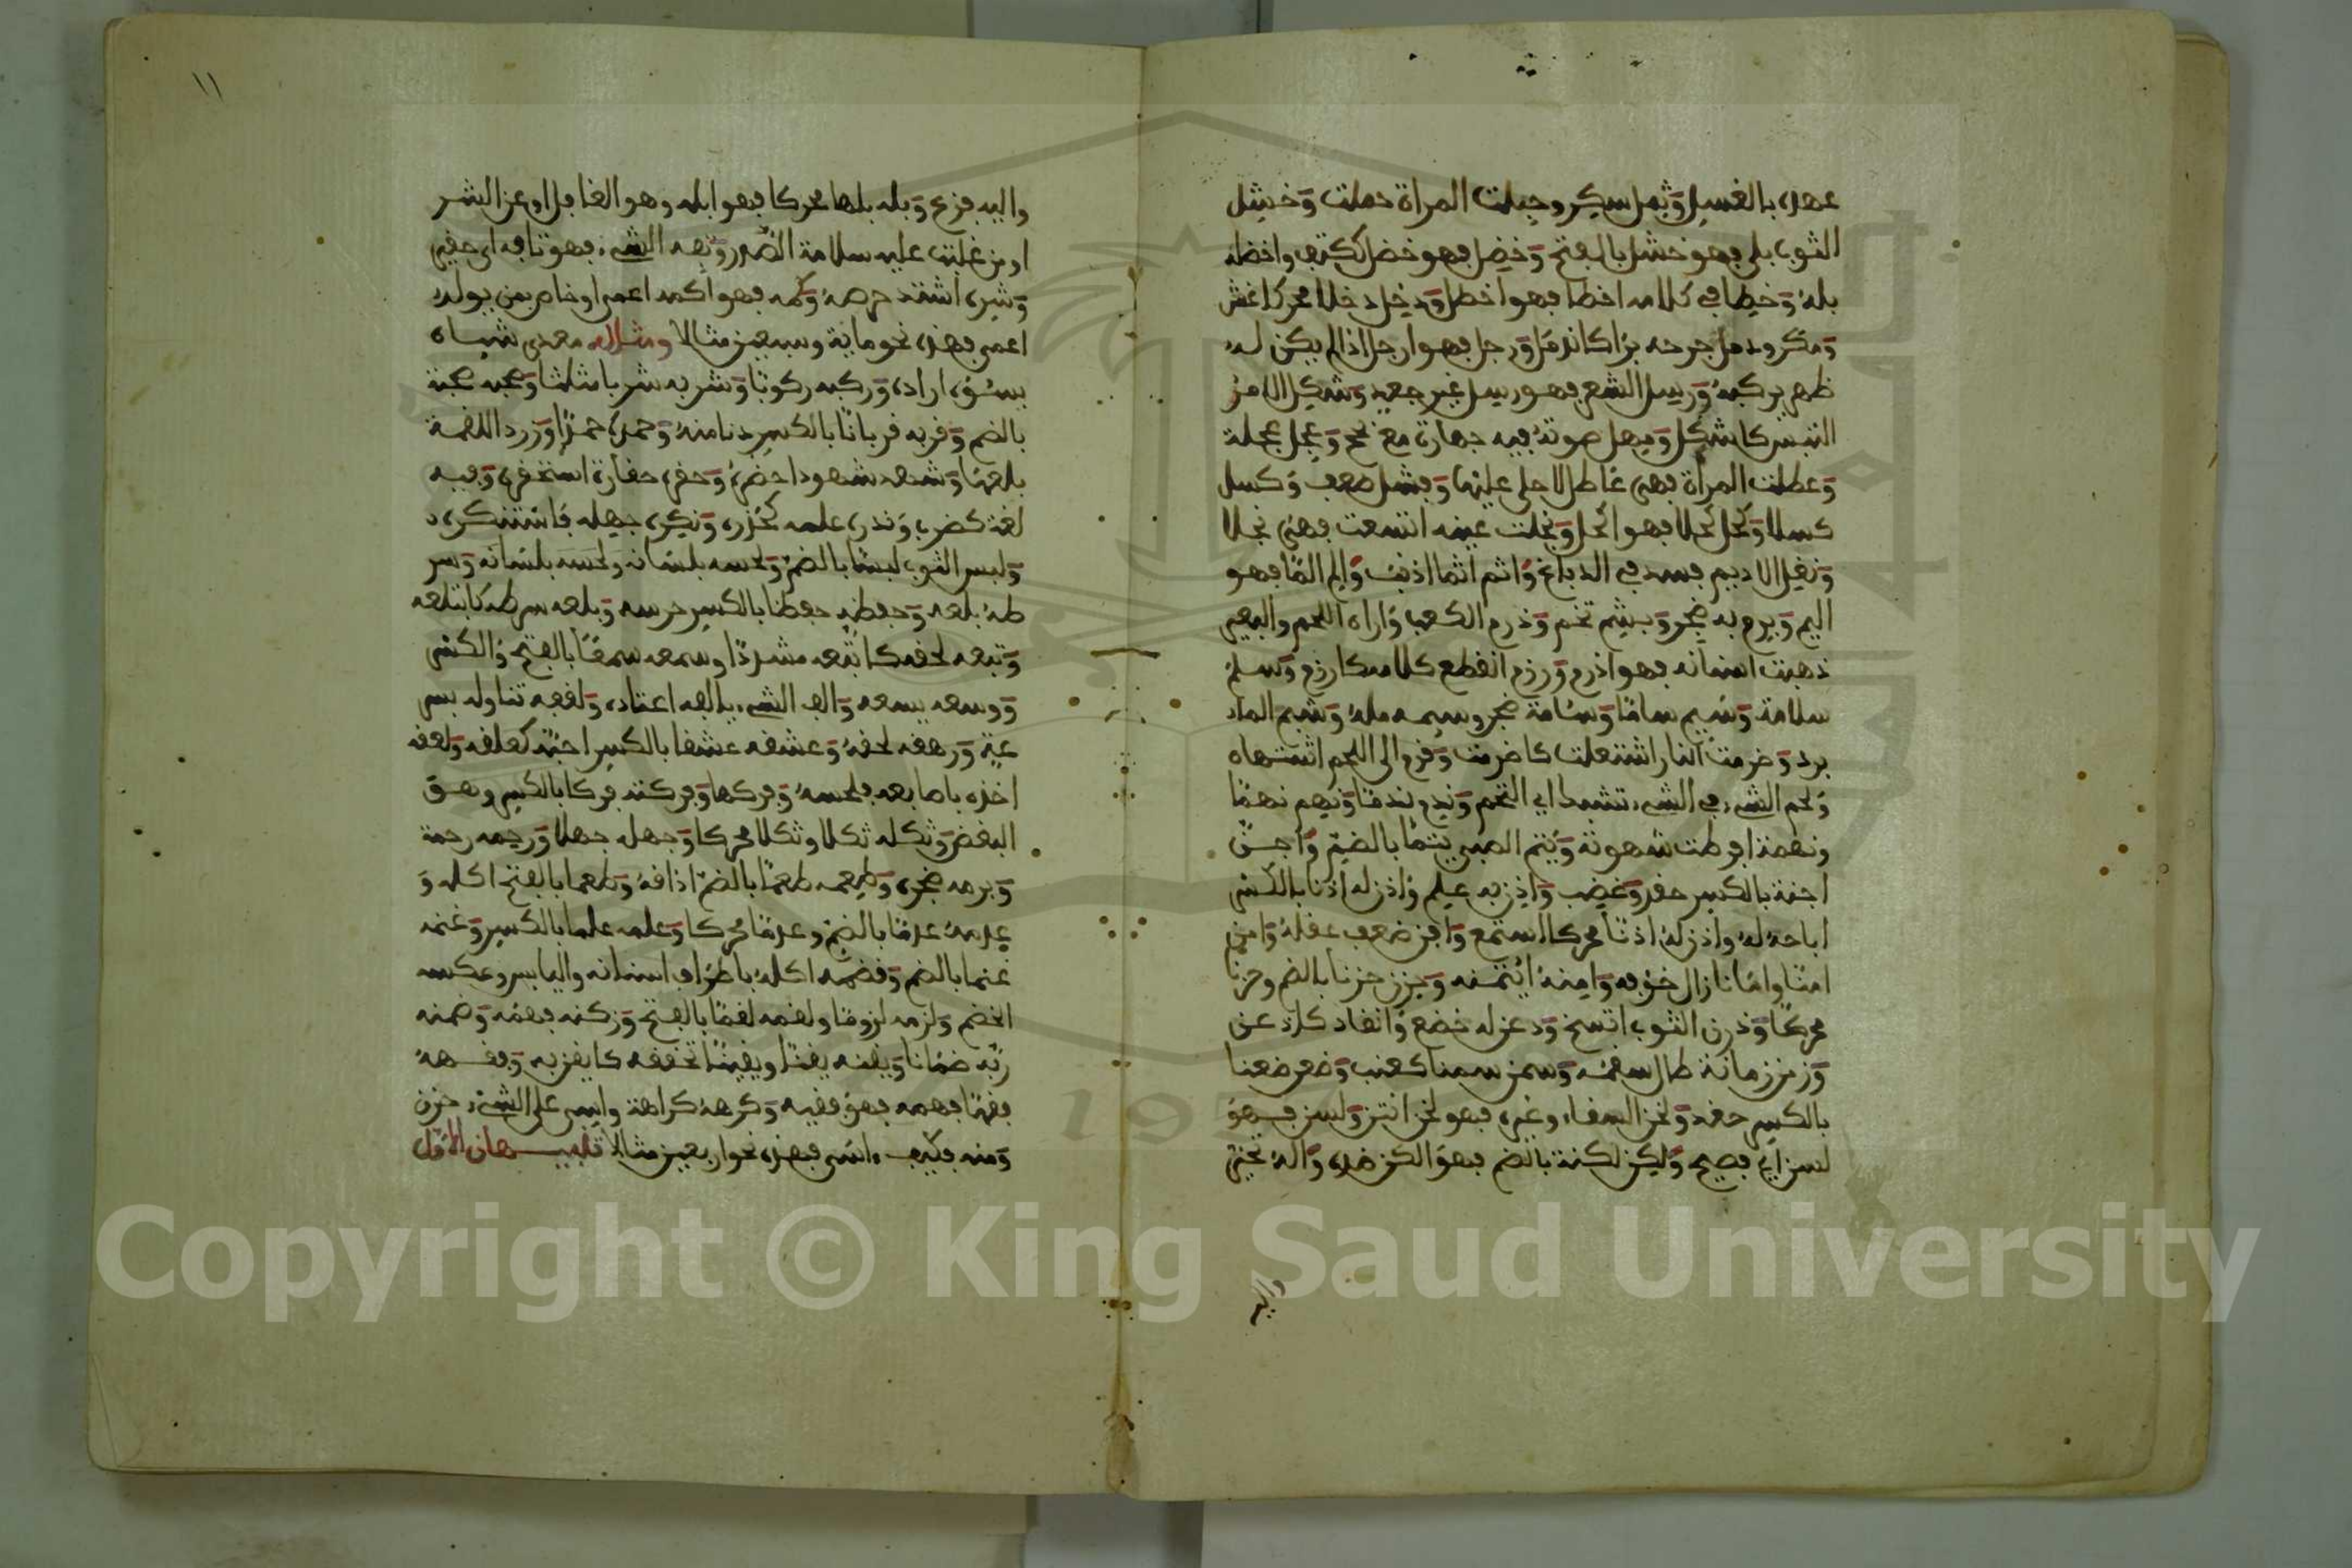 عهده بالغسل وثمل سكر وحبلت المراة حملت وخشل
الثوب بلى فهو خشل بالفتح وخضل فهو خضل ككتف واخضله
بله وخطل في كلامه اخطا فهو اخطل ودخل دخلا محركا غش
ومكر ودمل جرحه برا كاندمل ورجل فهو ارجل اذا لم يكن له
ظهر يركبه ورسل الشعر فهو رسل غير جعد وشكل الامر
التبس كاشكل وصهل صوته فيه جهارة مع بحح وعجل عجلة
وعطلت المراة فهى عاطل لا حلي عليها وفشل ضعف وكسل
كسلا وكحل كحلا فهو اكحل ونجلت عينه اتسعت فهى نجلا
ونغل الاديم فسد في الدباغ واثم اثما اذنب والم الما فهو
اليم وبرم به ضجر وبشم تخم ودرم الكعب واراه اللحم والبعير
ذهبت اسنانه فهو ادرم ورزم انقطع كلامه كارزم وسلم
سلامة وسئم سأما وسئامة ضجر وسئمه مله وشبم الماء
برد وضرمت النار اشتعلت كاضرمت وقرم الى اللحم اشتهاه
ولحم الشيء في الشيء نشب اي التحم وندم ندما ونهم نهما
ونهمة افرطت شهوته ويتم الصبي يتما بالضم واحن
احنة بالكسر حقد وغضب واذن به علم واذن له اذنا بالكسر
اباحه له واذن له اذنا محركا استمع وافن ضعف عقله وامن
امنا وامانا زال خوفه وامنه ائتمنه وحزن حزنا بالضم وحزنا
محركا ودرن الثوب اتسخ ودعن له خضع وانقاد كاذعن
وزمن زمانة طال سقمه وسمن سمنا كعنب وضغن ضغنا
بالكسر حقد ولخن السقاء وغيره فهو لخن انتن ولسن فهو
لسن اي فصيح ولكن لكنة بالضم فهو الكن ضده واله تحير
واليه
١١
واليه فزع وبله بلها محركا فهو ابله وهو الغافل او عن الشر
او من غلبت عليه سلامة الصدر وتفه الشيء فهو تافه اي حقير
وشره اشتد حرصه وكمه فهو اكمه اعمى او خاص بمن يولد
اعمى فهذه نحو مائة وسبعين مثالا ومثاله معدى شياه
يسئوه اراده وركبه ركوبا وشربه شربا مثلثا وصحبه صحبة
بالضم وقربه قربانا بالكسر دنا منه وحمده حمدا وزرد اللقمة
بلعها وشهده شهودا حضره وحقره حقارة استحقره وفيه
لغة كضرب ونذره علمه كحذره ونكره جهله فاستنكره
ولبس الثوب لبسا بالضم ولحسه بلسانه ولحسه بلسانه وسر
طه بلعه وحفظه حفظا بالكسر حرسه وبلعه سرطه كابتلعه
وتبعه لحقه كاتبعه مشددا وسمعه سمعا بالفتح والكسر
ووسعه يسعه والف الشيء يالفه اعتاده ولقفه تناوله بسر
عة ورهقه لحقه وعشقه عشقا بالكسر احبه كعلقه ولعقه
اخذه باصابعه فلحسه وفركها وفركته فركا بالكسر وهو
البغض وثكله ثكلا وثكلا محركا وجهله جهلا ورحمه رحمة
وبرمه ضجره وطعمه طعما بالضم اذاقه وطعما بالفتح اكله و
عدمه عدما بالضم وعدما محركا وعلمه علما بالكسر وغنمه
غنما بالضم وقضمه اكله باطراف اسنانه واليابس وعكسه
الخضم ولزمه لزوما ولقمه لقما بالفتح وزكنه فهمه وضمنه
ربه ضمانا ويقنه يقنا ويقينا تحققه كايقن به وفقهه
فقها فهمه فهو فقيه وكرهه كراهة وايس على الشيء حزن
ومنه فكيف ءاسى فهذه نحو اربعين مثالا تنبيهان الاول